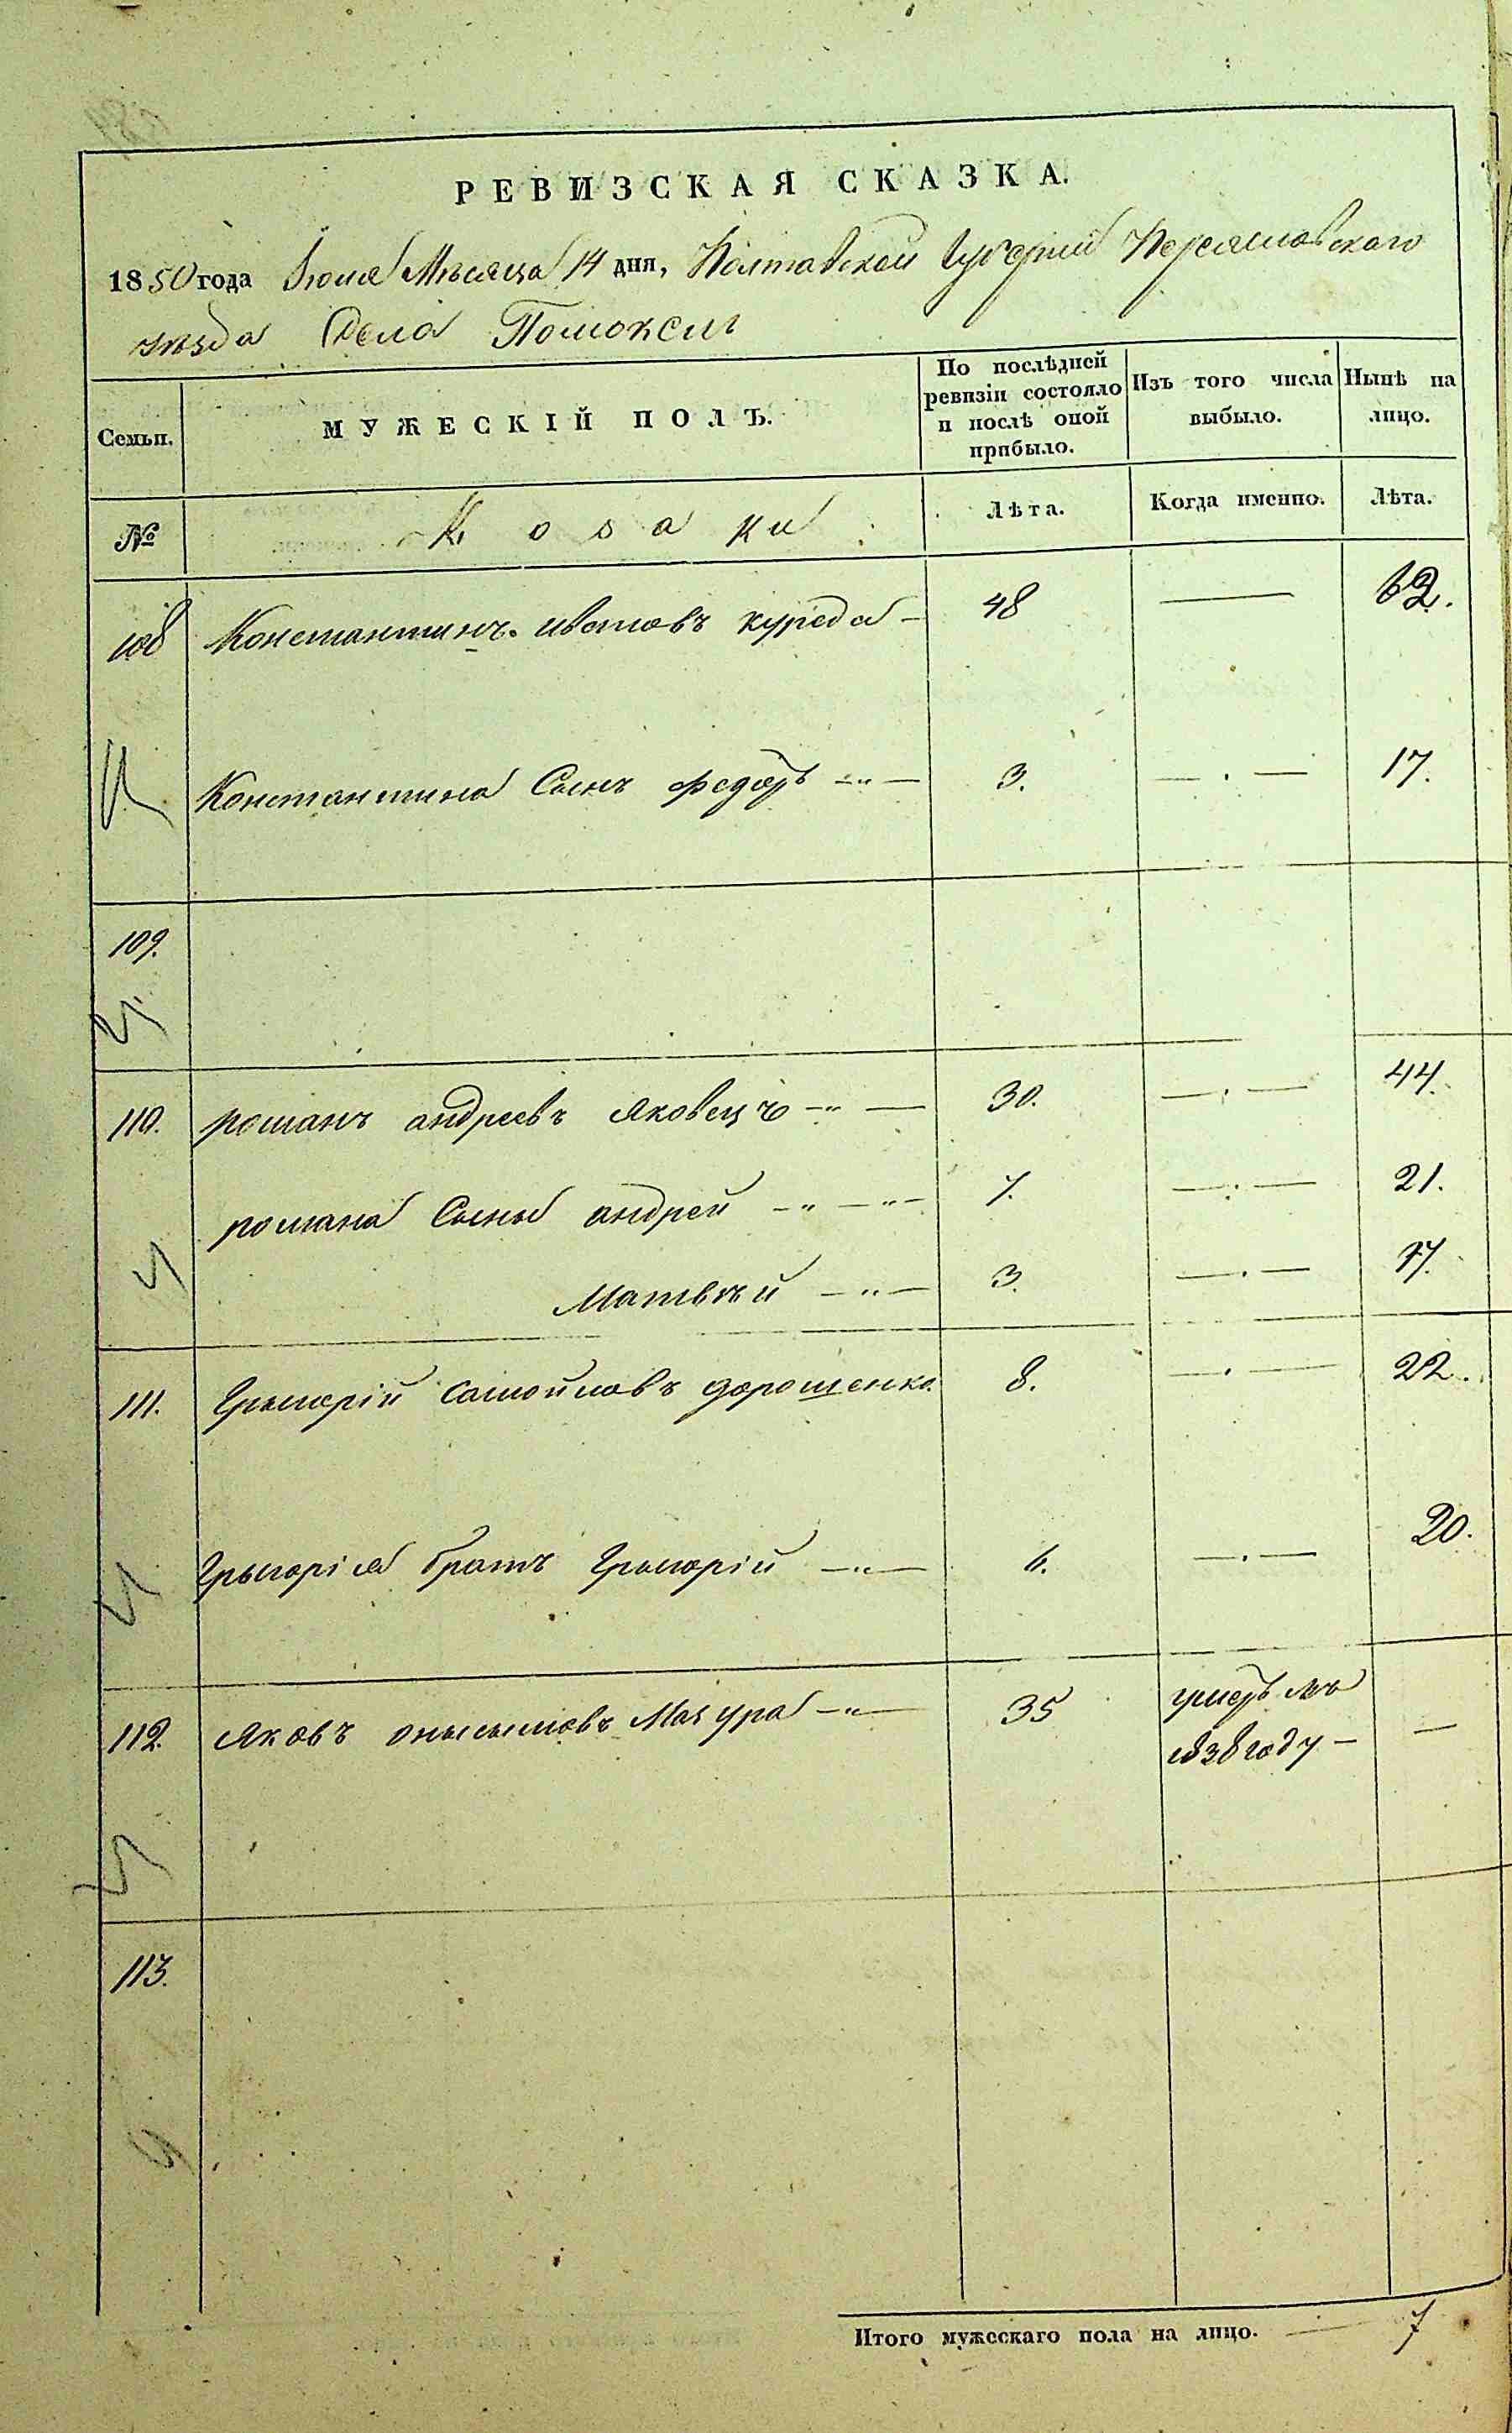 РЕВИЗСКАЯ СКАЗКА.
1850 года Июля Мѣсяца 14 дня, Полтавской Губерніи Переяславского
уѣзда Села Помоклы
Семьи.
МУЖЕСКІЙ ПОЛЪ.
По послѣдней ревизіи состояло и послѣ оной прибыло.
Изъ того числа выбыло.
Нынѣ на лицо.
№
Козаки
Лѣта.
Когда именно.
Лѣта.
108 Константинъ ивановъ куреда — 48 — 62.
Константина Сынъ федоръ — 3. — 17.
109.
110. романъ андреевъ Яковецъ — 30. — 44.
романа Сыны андрей — 7. — 21.
Матвѣй — 3. — 17.
111. Грыгорій самойловъ дорошенко. 8. — 22.
Грыгорія братъ Грыгорій — 6. — 20.
112. Яковъ онысымовъ Мачура — 35 умеръ въ —
1838 году —
113.
Итого мужескаго пола на лицо. — 7